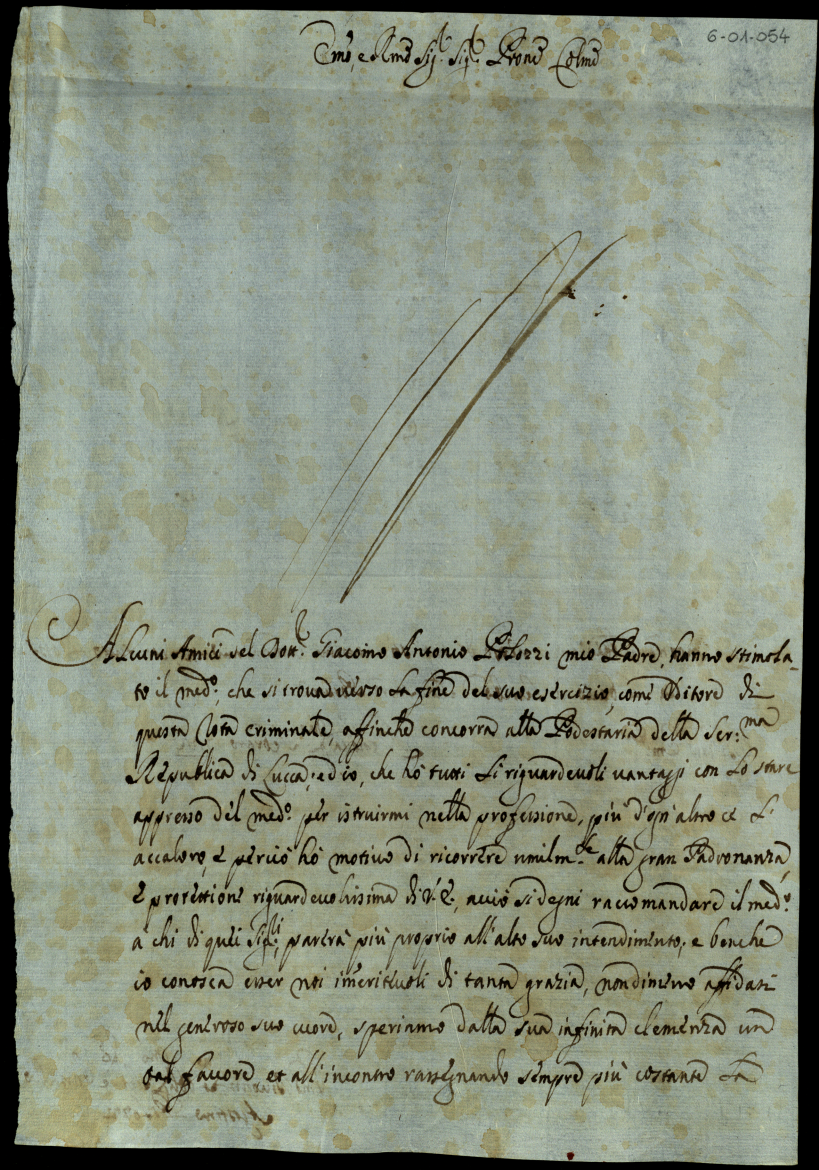 6-01-054
Emo, e Rmo Sigr. Sigr. Prone Colmo
ALcuni Amici del Dottr. Giacomo Antonio mio Padre, hanno stimola-
to il medo: che si trova verso la fine del suo esercizio, come Uditore di
questa Rota criminale, affinche concorra alla Podestaria della Ser:ma
Republica di Lucca; ed io, che hò tutti li riguardevoli vantaggi con lo stare
appresso del medo: per istruirmi nella professione, più d'ogn'altro ce l'
accaloro, e perciò hò motivo di ricorrere umilmte alla gran Padronanza,
e protettione riguardevolissima di V.E., acciò si degni raccomandare il medo:
a chi di quei Sigri, parerà più proprio all'alto suo intendimento; e benche
io conosca esser noi imeritevoli di tanta grazia, nondimeno affidati
nel generoso suo cuore, speriamo dalla sua infinita clemenza un
tal favore et all'incontro rassegnando sempre più costante la